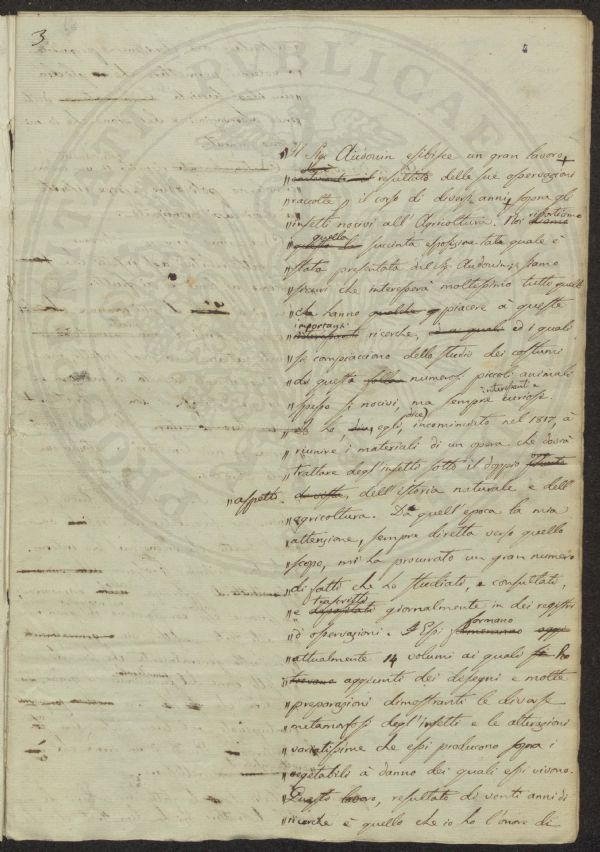 3
" Il Sigr Audouin esibisce un gran lavoro +
" resultato delle sue osservazioni
" raccolte p il corso di diverse anni, sopra gl'
" insetti nocivi all'Agricoltura. Noi riportiamo
" quella succinta esposizione tale quale è
" stata presentata dal Sr Audouin; siamo
" sicuri che interesserà moltissimo tutti quelli
" che hanno qualche piacere à queste
" importanti
" interessanti ricerche, è i quali
" si compiacciono dello studio dei costumi
" di questa folla numerosi piccoli animali
interessanti e
" spesso si nocivi, ma sempre curiosi.
" Ho, dice egli, incominciato nel 1817, à
" riunire i materiali di un opera che dovrà
" trattare degl'insetti sotto il doppio
" aspetto di vista, dell'istoria naturale e dell'
" agricoltura. Da quell'epoca la mia
" attenzione, sempre diretta verso quello
" scopo, mi ha procurato un gran numero
" di fatti che ho studiati, e consultati,
trascritti
" e depositati giornalmente in dei registri
" d'osservazioni. Essi formano
" attualmente 14 volumi ai quali
" trovano aggiunti dei disegni e molte
" preparazioni dimostranti le diverse
" metamorfosi degl'insetti e le alterazioni
" variatissime che essi producono sopra i
" vegetabili à danno dei quali essi vivono.
" Questo lavoro, resultato di venti anni di
" ricerche è quello che io ho l'onore di